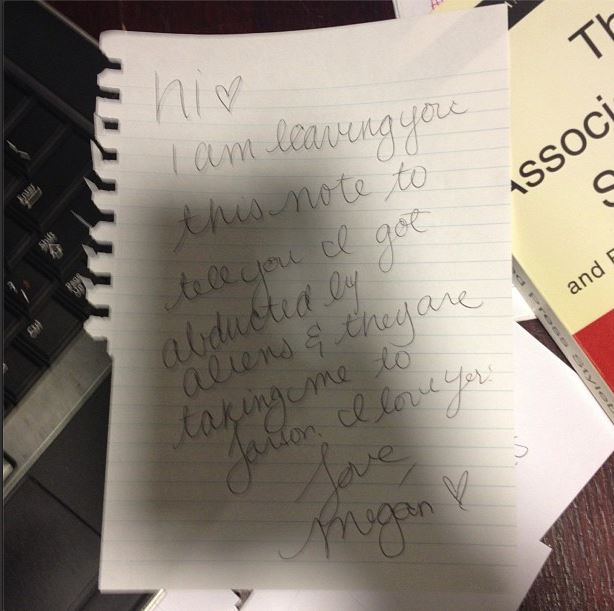 hi ♡
I am leaving you
this note to
tell you I got
abducted by
aliens & they are
taking me to
I love
love,
Megan ♡
Th
Associ
S
and
Press Styleb